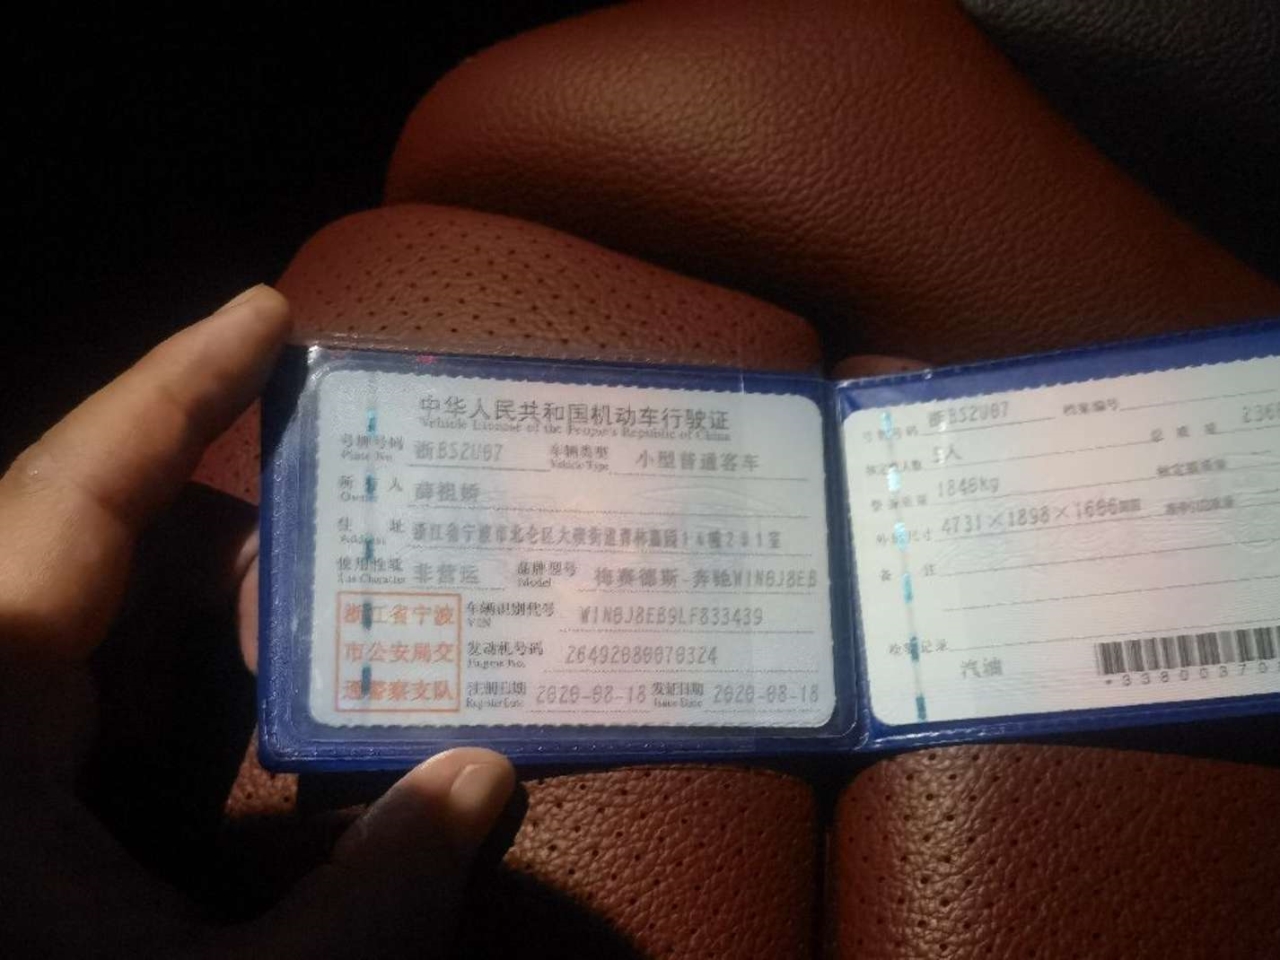 中华人民共和国机动车行驶证
Vehicle License of the People's Republic of China
号牌号码 浙BS2U87 车辆类型 小型普通客车
Plate No. Vehicle Type
所有人 薛祖娇
Owner
住址 浙江省宁波市北仑区大碶街道
Address
使用性质 非营运 品牌型号 梅赛德斯-奔驰W1N0J8EB
Use Character Model
浙江省宁波
市公安局交
通警察支队
车辆识别代号 W1N0J8EB9LF833439
VIN
发动机号码 26492080070324
Engine No.
注册日期 2020-08-18 发证日期 2020-08-18
Register Date Issue Date
号牌号码 浙BS2U87 档案编号
核定载人数 5人 总质量 236
整备质量 1846kg 核定载质量
外廓尺寸 4731×1898×1686
备注
检验记录
汽油
*33800370